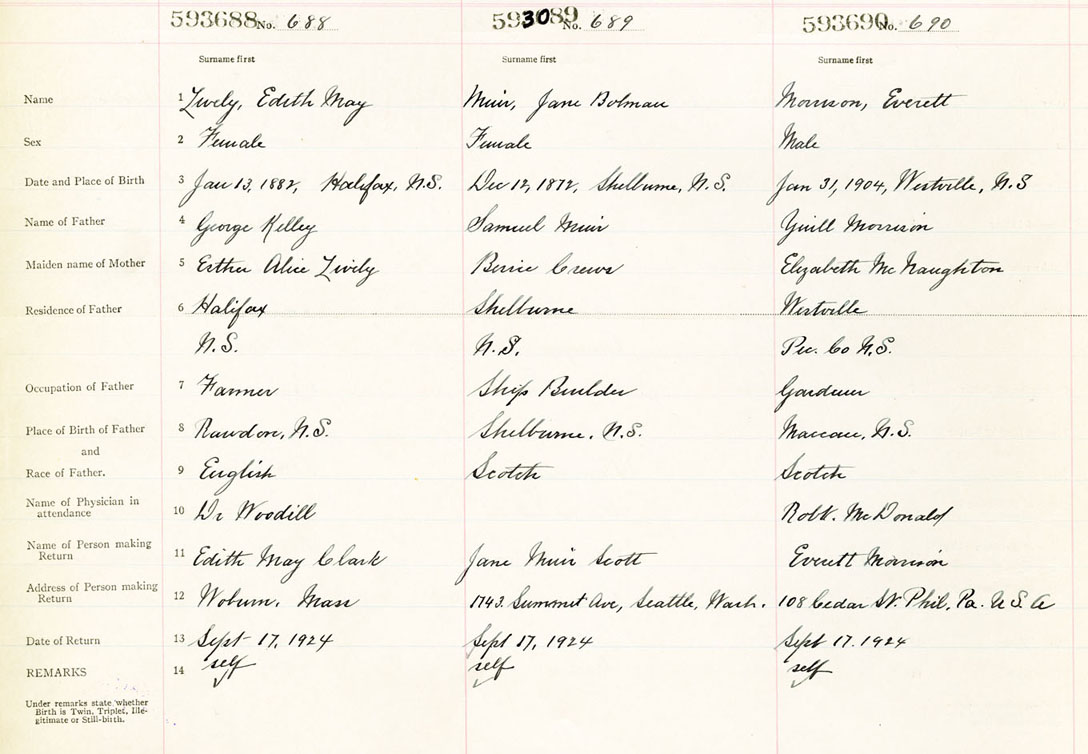 593688 No. 688 593089 No. 689 593690 No. 690
Surname first Surname first Surname first
Name 1 Lively, Edith May Muir, Jane Bolman Morrison, Everett
Sex 2 Female Female Male
Date and Place of Birth 3 Jan 13, 1882, Halifax, N.S. Dec 12, 1872, Shelburne, N.S. Jan 31, 1904, Westville, N.S
Name of Father 4 George Kelley Samuel Muir Yuill Morrison
Maiden name of Mother 5 Esther Alice Lively Crews Elizabeth McNaughton
Residence of Father 6 Halifax Shelburne Westville
N.S. N.S. Pic. Co N.S.
Occupation of Father 7 Farmer Ship Builder Gardener
Place of Birth of Father 8 Rawdon, N.S. Shelburne, N.S. Maccan, N.S.
and
Race of Father. 9 English Scotch Scotch
Name of Physician in
attendance 10 Dr Woodill Robt. McDonald
Name of Person making
Return 11 Edith May Clark Jane Muir Scott Everett Morrison
Address of Person making
Return 12 Woburn, Mass 1743 Summit Ave, Seattle, Wash. 108 Cedar St. Phil, Pa. U S A
Date of Return 13 Sept 17, 1924 Sept 17, 1924 Sept 17. 1924
REMARKS 14 self self self
Under remarks state whether
Birth is Twin, Triplet, Ille-
gitimate or Still-birth.